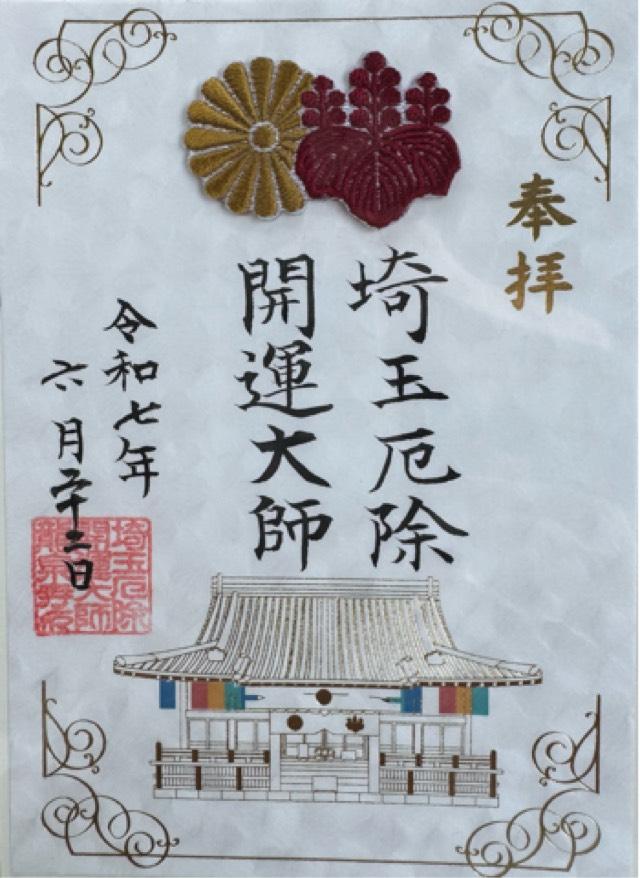 奉拝
埼玉厄除
開運大師
令和七年
六月二十二日
埼玉厄除
開運大師
龍泉寺